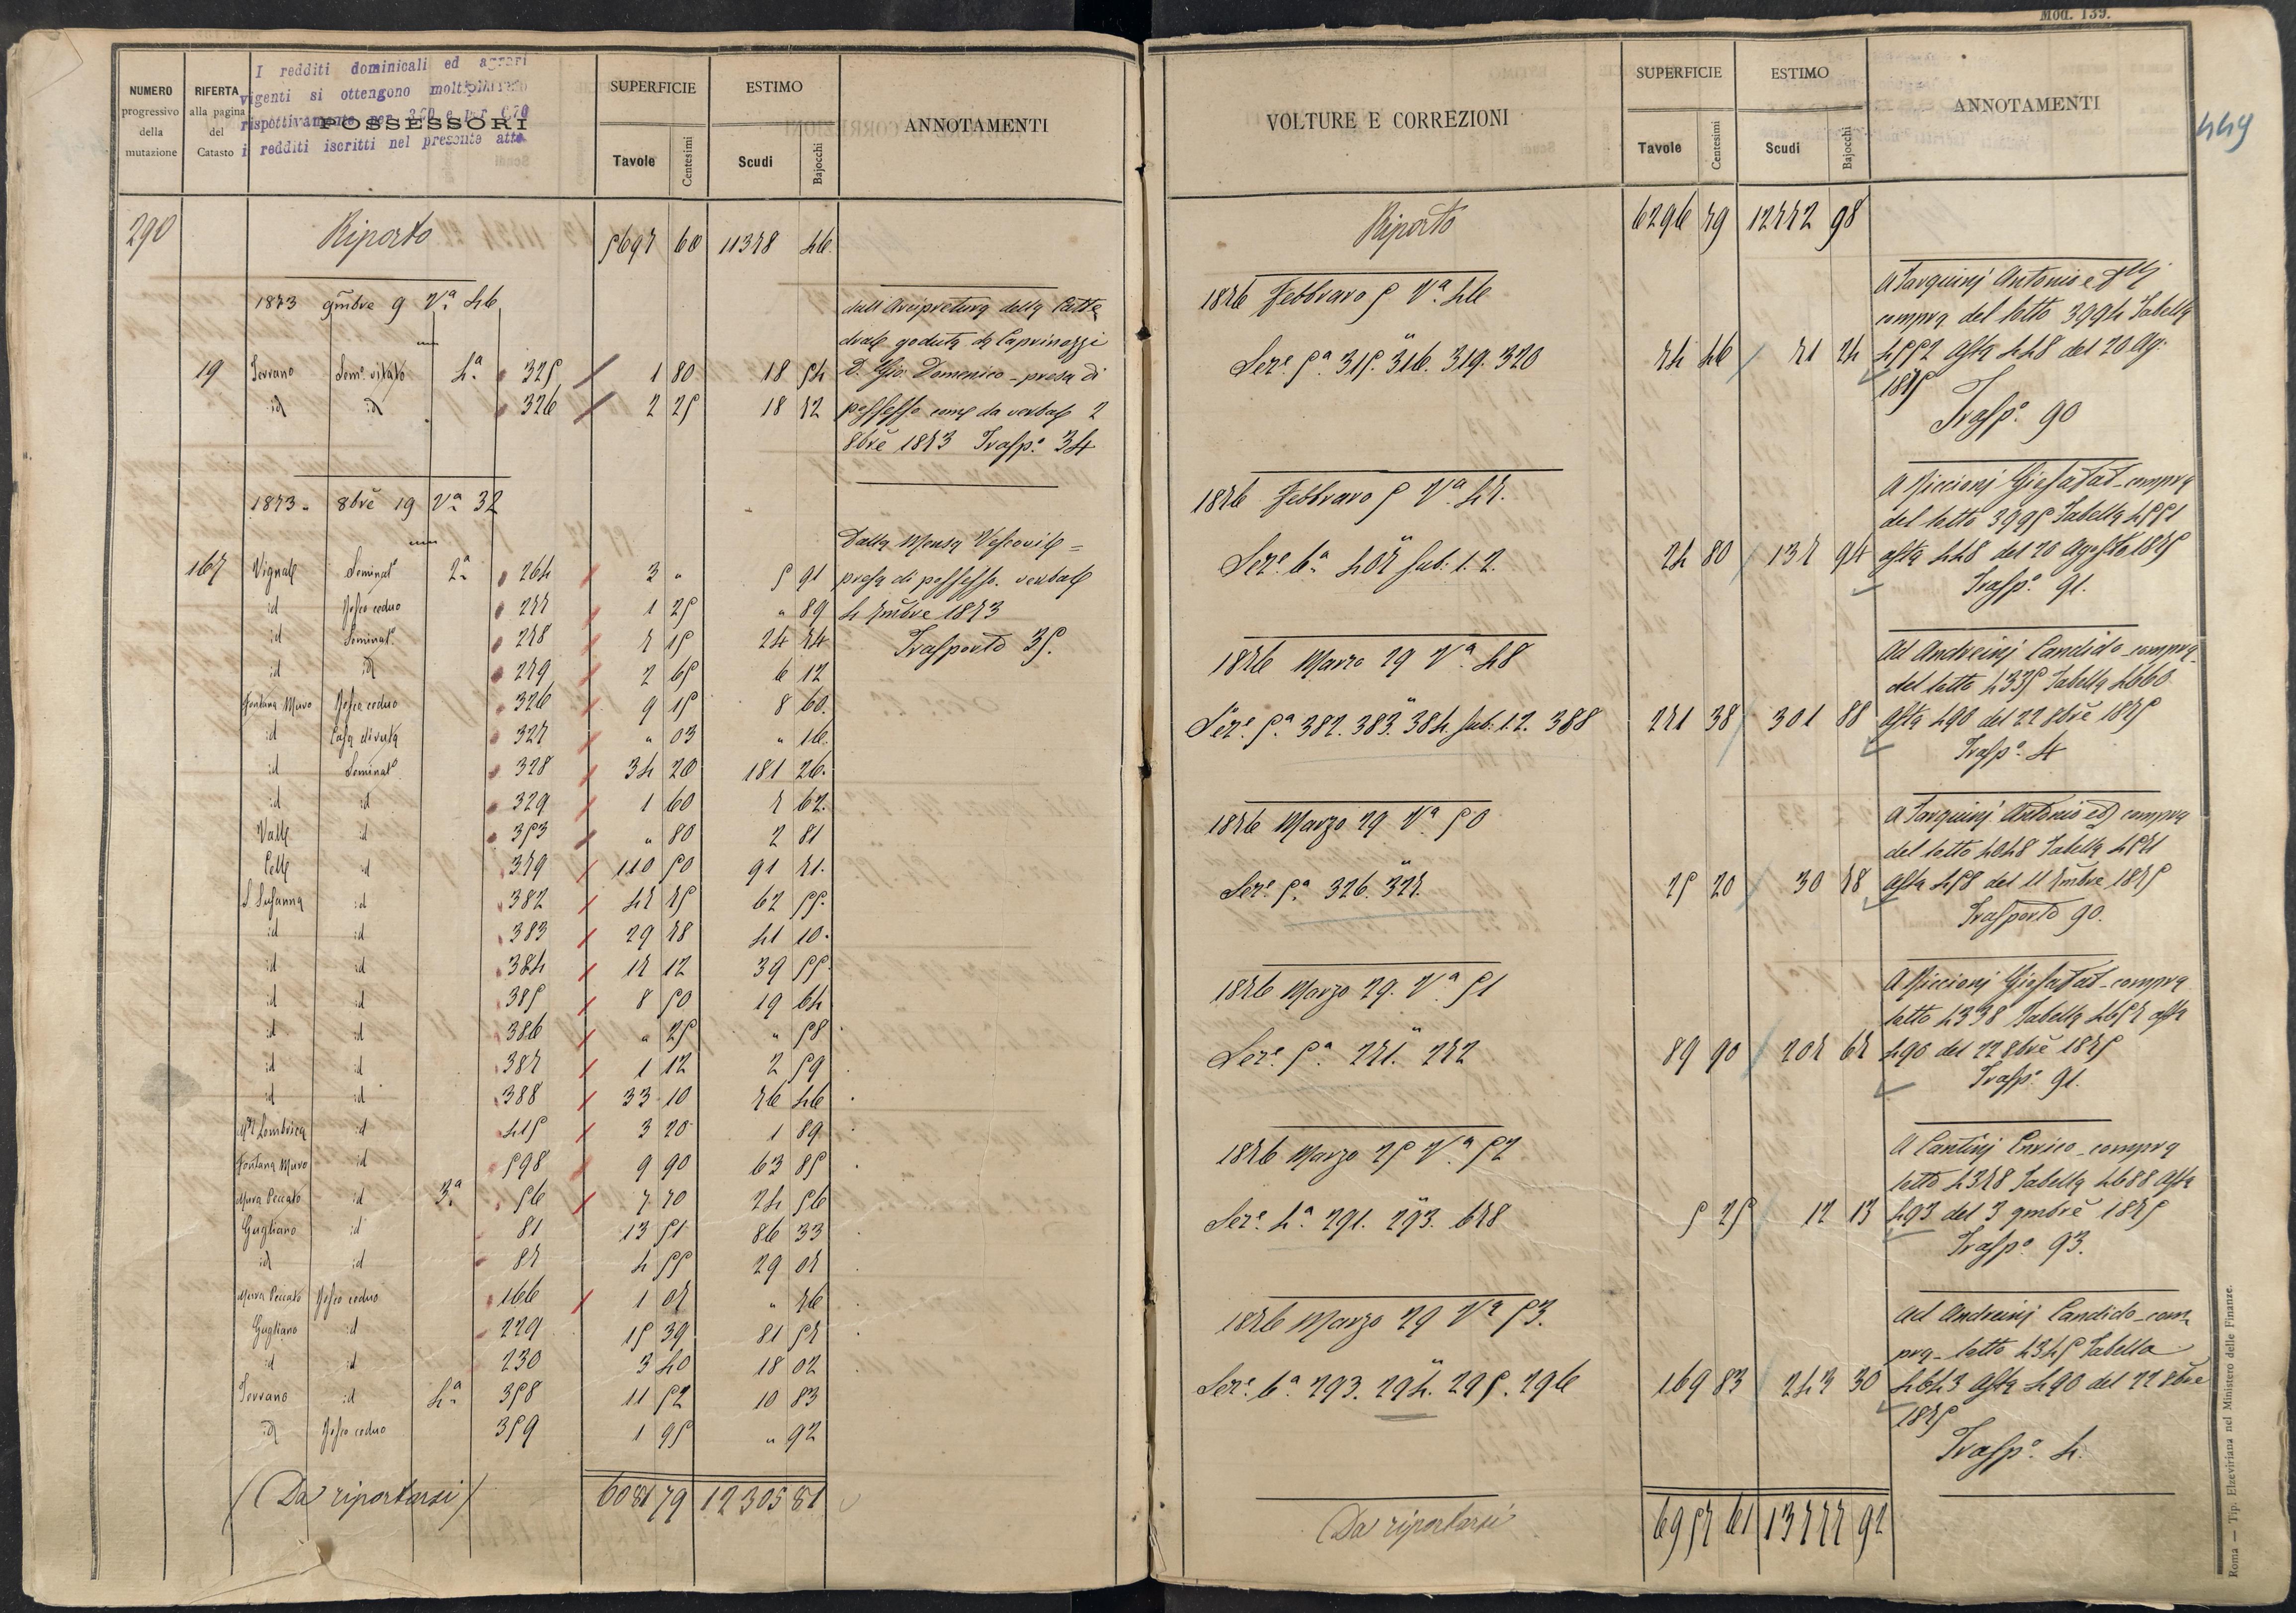 Mod. 139.
449
I redditi dominicali ed agrari
vigenti si ottengono moltiplicando
rispettivamente per 320 e per 670
i redditi iscritti nel presente atto
NUMERO progressivo della mutazione
RIFERTA alla pagina del Catasto
POSSESSORI
SUPERFICIE
Tavole Centesimi
ESTIMO
Scudi Bajocchi
ANNOTAMENTI
290 Riporto 5697 60 11378 46
1873 9mbre 9 Va 46 dall'Arcipretura della Catte
drale goduta da Caprinozzi
19 Terrano Semo vitato 4a 325 1 80 18 54 D. Gio. Domenico - presa di
id id 326 2 25 18 72 possesso come da verbale 2
8bre 1873 Traspo 34
1873 - 8bre 19 Va 32
Dalla Mensa Vescovile =
167 Vignale Seminato 2a 264 3 " 5 91 presa di possesso. verbale
id Bosco ceduo 277 1 25 " 89 4 7mbre 1873
id Seminato 278 7 15 24 74 Trasporto 35.
id id 279 2 65 6 12
Fontana Muro Bosco ceduo 326 9 15 8 60
id Casa diruta 327 " 03 " 16
id Seminato 328 34 20 181 26
id id 329 1 60 7 62
Valle id 353 " 80 2 81
Celle id 379 110 50 91 71
S Susanna id 382 47 75 62 55
id id 383 29 78 41 10
id id 384 17 12 39 55
id id 385 8 50 19 64
id id 386 " 25 " 58
id id 387 1 12 2 59
id id 388 33 10 76 46
Lombrica id 415 3 20 1 89
Fontana Muro id 598 9 90 63 85
Mura Peccato id 3a 56 7 70 24 56
Gugliano id 81 13 51 86 33
id id 87 4 55 29 07
Mura Peccato Bosco ceduo 166 1 07 " 76
Gugliano id 229 15 39 81 57
id id 230 3 40 18 02
Terrano id 4a 358 11 52 10 83
id Bosco ceduo 359 1 95 " 92
(Da riportarsi) 6081 79 12305 81
VOLTURE E CORREZIONI
SUPERFICIE
Tavole Centesimi
ESTIMO
Scudi Bajocchi
ANNOTAMENTI
Riporto 6296 79 12772 98
1876 Febbraro 5 Va 46 A Tarquinj Antonio e
compra del lotto 3994 Tabella
Seze 5a 315. 316. 319. 320 74 46 71 24 4552 Asta 448 del 20 Ag:
1875
Traspo 90
1876 Febbraro 5 Va 47. A Piccionj Giosafat - compra
del lotto 3995 Tabella 4551
Seze 6a 407 sub: 1. 2. 24 80 137 94 asta 448 del 20 Agosto 1875
Traspo 91.
1876 Marzo 29 Va 48 Ad Andreinj Candido - compra
del lotto 4335 Tabella 4660
Seze 5a 382. 383. 384. sub: 1. 2. 388 271 38 301 88 Asta 490 del 22 8bre 1875
Traspo 4
1876 Marzo 29 Va 50 A Tarquinj Antonio ed compra
del lotto 4048 Tabella 4571
Seze 5a 326. 327. 25 20 30 78 Asta 458 del 11 7mbre 1875
Trasporto 90.
1876 Marzo 29. Va 51 A Piccionj Giosafat - compra
lotto 4338 Tabella 4657 asta
Seze 5a 271. 272 89 90 207 67 490 del 22 8bre 1875
Traspo 91.
1876 Marzo 25 Va 52 A Cantinj Enrico - compra
lotto 4378 Tabella 4688 Asta
Seze 4a 291. 293. 678 5 25 12 13 493 del 3 9mbre 1875
Traspo 93.
1876 Marzo 29 Va 53. Ad Andreinj Candido - com
pra - lotto 4345 Tabella
Seze 6a 293. 294. 295. 296 169 83 243 30 4643 Asta 490 del 22 8bre
1875
Traspo 4.
Da riportarsi 6957 61 13777 92
Roma — Tip. Elzeviriana nel Ministero delle Finanze.